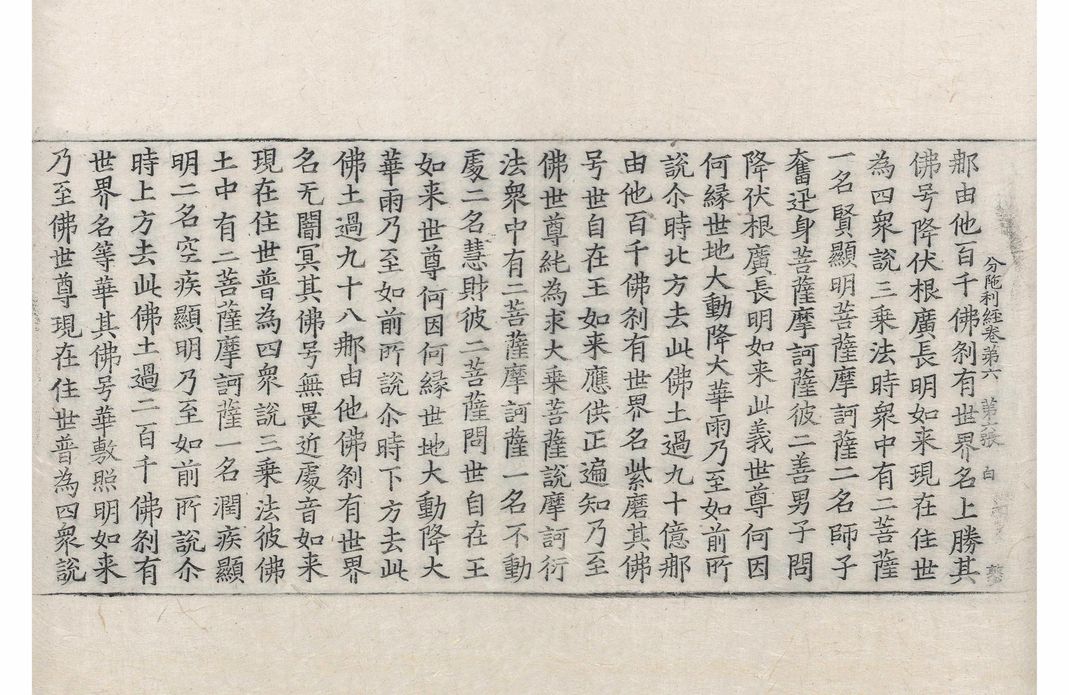 分陁利經卷第六　第六張　白
那由他百千佛刹有世界名上勝其
佛号降伏根廣長明如来現在住世
為四衆說三乗法時衆中有二菩薩
一名賢顯明菩薩摩訶薩二名師子
奮迅身菩薩摩訶薩彼二善男子問
降伏根廣長明如来此義世尊何因
何縁世地大動降大華雨乃至如前所
說尒時北方去此佛土過九十億那
由他百千佛刹有世界名紫磨其佛
号世自在王如来應供正遍知乃至
佛世尊純為求大乗菩薩說摩訶衍
法衆中有二菩薩摩訶薩一名不動
處二名慧財彼二菩薩問世自在王
如来世尊何因何縁世地大動降大
華雨乃至如前所說尒時下方去此
佛土過九十八那由他佛刹有世界
名无闇冥其佛号無畏近處音如来
現在住世普為四衆說三乗法彼佛
土中有二菩薩摩訶薩一名潤疾顯
明二名空疾顯明乃至如前所說尒
時上方去此佛土過二百千佛刹有
世界名等華其佛号華敷照明如来
乃至佛世尊現在住世普為四衆說